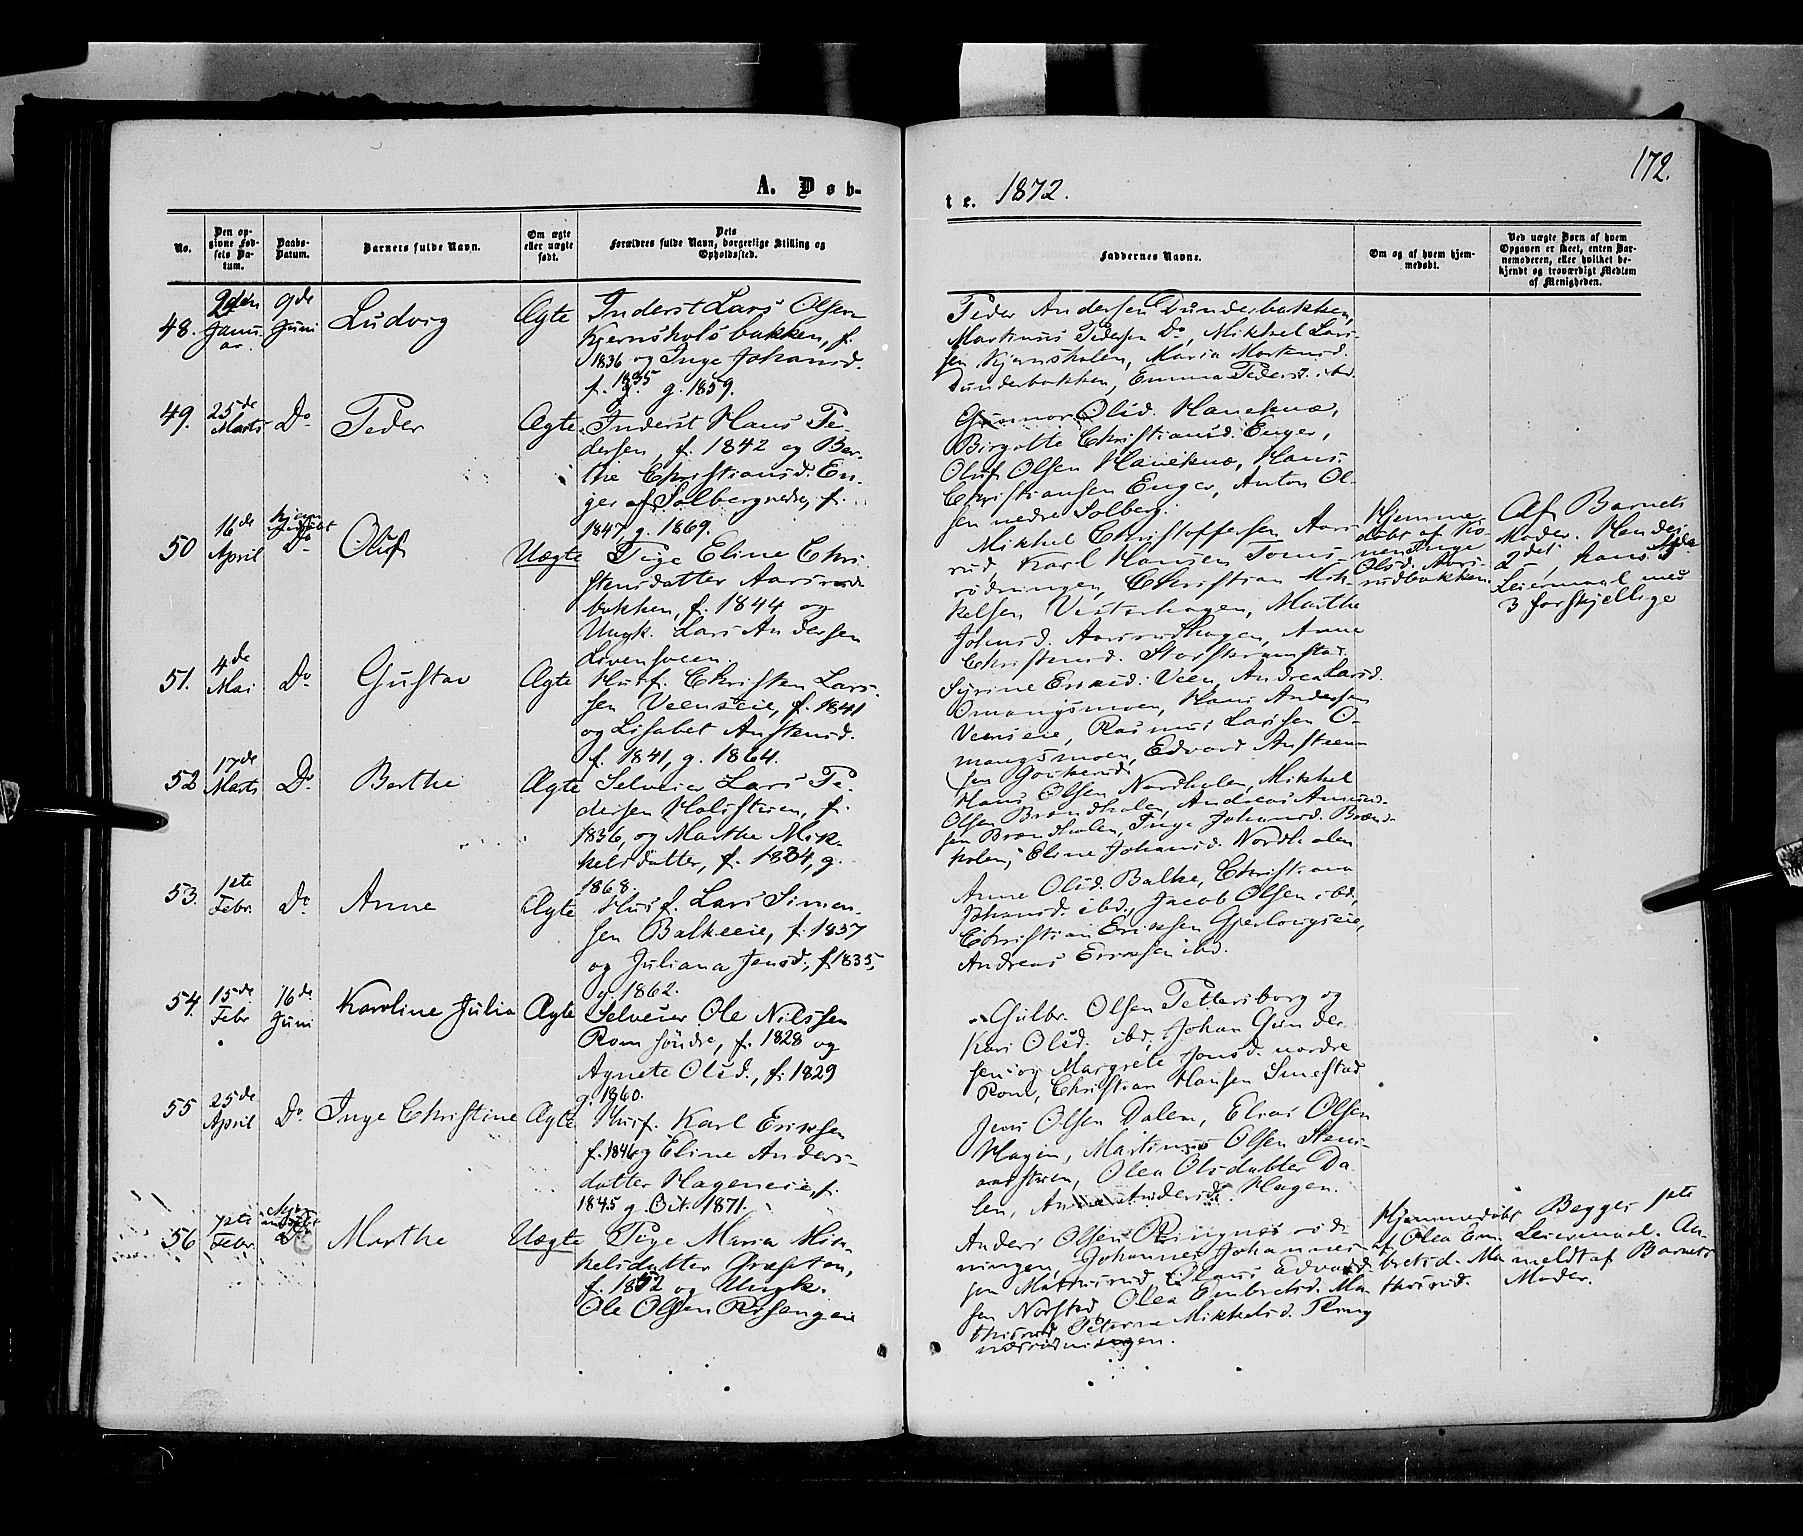 172.
A. Døb-
te. 1872.
No.
Den op-
givne Fød-
sels Da-
tum.
Daabs-
Datum.
Barnets fulde Navn.
Om ægte
eller uægte
født.
Dets
Forældres fulde Navn, borgerlige Stilling og
Opholdssted.
Faddernes Navne.
Om og af hvem hjem-
medøbt.
Ved uægte Børn af hvem
Opgaven er skeet, enten Bar-
nemoderen, eller hvilket be-
kjendt og troværdigt Medlem
af Menigheden.
48.
2den
Janu-
ar.
9de
Juni
Ludvig
Ægte
Inderst Lars Olsen
Kjernsholsbakken, f.
1836 og Inge Johansd.
f. 1835 g. 1859.
Peder Andersen Dunderbakken,
Martinus Pedersen Do, Mikkel Lar-
sen Kjernsholen, Maria Martinsd.
Dunderbakken, Emma Pedersd. ibd.
49.
25de
Marts
Do
Peder
Ægte
Inderst Hans Pe-
dersen, f. 1842 og Ber-
the Christiansd. En-
ger af Solberg nedre, f.
1847, g. 1869.
Gunnor Olsd. Haneknæ,
Birgitte Christiansd. Enger,
Oluf Olsen Haneknæ, Hans
Christiansen Enger, Anton Ol-
sen nedre Solberg.
50
16de
April
Do
Oluf
Uægte
Pige Eline Chri-
stensdatter Aasrud-
bakken, f. 1844 og
Ungk. Lars Andersen
Livensveen
Mikkel Christoffersen Aas-
rud, Karl Hansen
rødningen, Christian Mik-
kelsen Vesterhagen, Marthe
Johnsd. Aasrudhagen, Anne
Christensd.
Hjemme-
døbt af Ko-
nen Inge
Olsd. Aas-
rudbakken.
Af Barnets
Moder. Hendes
2det, hans 3die
Leiermaal med
3 forskjellige
51.
4de
Mai
Do
Gustav
Ægte
Husf. Christen Lars-
sen Veenseie, f. 1841
og Lisabet Anstensd.
f. 1841, g. 1864.
Syrine Ersd. Veen, Andrea Larsd.
Omangsmoen, Hans Andersen
Veenseie, Rasmus Larssen O-
mangsmoen, Edvard Ansteen-
sen
52
17de
Marts
Do
Berthe
Ægte
Selveier Lars Pe-
dersen Holistuen, f.
1836, og Marthe Mik-
kelsdatter, f. 1834, g.
1868.
Hans Olsen Nordholen, Mikkel
Olsen Brændholen, Andreas Amund-
sen Brændholen, Inge Johansd. Brænd-
holen, Eline Johansd. Nordholen
53.
1ste
Febr.
Do
Anne
Ægte
Husf. Lars Simen-
sen Balkeeie, f. 1837
og Juliana Jensd., f. 1835,
g. 1862.
Anne Olsd. Balke, Christiana
Johansd. ibd., Jacob Olsen ibd.,
Christian Eriksen Gjerlougseie,
Andreas Eriksen ibd.
54.
15de
Febr
16de
Juni
Karoline Julia
Ægte
Selveier Ole Nilssen
Rom søndre, f. 1828 og
Agnete Olsd., f. 1829
g. 1860.
Gulbr. Olsen Pettersborg og
Kari Olsd. ibd., Johan Gunder-
sen og Margrete Jensd. nordre
Rom, Christian Hansen Smestad
55
25de
April
Do
Inge Christine
Ægte
Husf. Karl Eriksen
f. 1846 og Eline Anders-
datter Hageneie, f.
1845 g. Oct. 1871.
Jens Olsen Dalen, Elias Olsen
Hagen, Martinus Olsen Stens-
aasstuen, Olea Olsdatter Da-
len, Anne Andersd. Hagen.
56
7de
Febr
Do
Marthe
Uægte
Pige Maria Mik-
kelsdatter Græften,
f. 1852 og Ungk.
Ole Olsen Rosengeie
Anders Olsen Ringnesrød-
ningen, Johannes Johannes-
sen Mathisrud, Claus Edvard-
sen Norstad, Olea Embretsd. Ma-
thisrud, Peterna Mikkelsd. Ring-
nesrødningen.
Hjemmedøbt
af Olea Em-
bretsd. Ma-
thisrud.
Begges 1ste
Leiermaal. An-
meldt af Barnets
Moder.